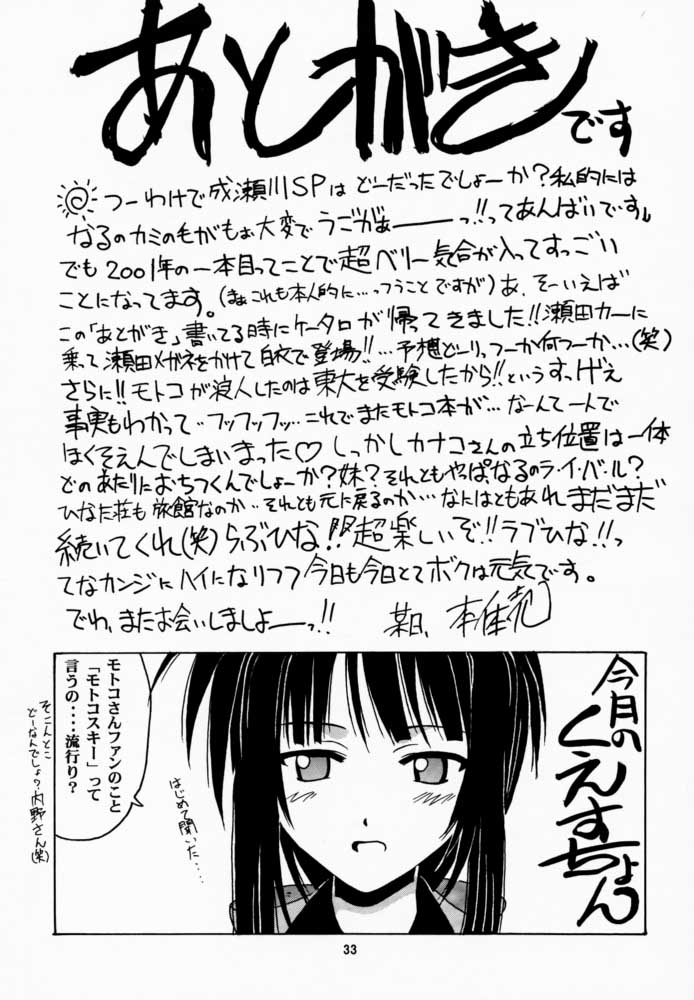 あとがき
です
つーわけで成瀬川SPは どーだったでしょーか?私的には
なるのカミの毛がもぉ大変で うごがぁーーーっ!!ってあんばいです。
でも2001年の一本目ってことで超ベリー気合が入ってすっごい
ことになってます。(まぁこれも本人的に…っつうことですが)あ、そーいえば
この「あとがき」書いてる時にケータロが帰ってきました!!瀬田カーに
乗って瀬田メガネをかけて白衣で登場!!…予想どーりっつーか何つーか…(笑)
さらに!!モトコが浪人したのは東大を受験したから!!というすっげえ
事実もわかって‥フッフッフッ…これでまたモトコ本が…なーんて一人で
ほくそえんでしまいまった♡しっかしカナコさんの立ち位置は一体
どのあたりにおちつくんでしょーか?妹?それともやぱなるのラ・イ・バ・ル?
ひなた荘も旅館なのか‥それとも元に戻るのか…なにはともあれまだまだ
続いてくれ(笑)らぶひな!!超楽しいぞ!!ラブひな!!っ
てなカンジにハイになりフフ今日も今日とてボクは元気です。
でわ、またお会いしましょーーっ!!
今月の
くえすちょん
モトコさんファンのこと
「モトコスキー」って
言うの....流行り?
はじめて聞いた....
そこんとこ
どーなんでしょ?内野さん(笑)
33